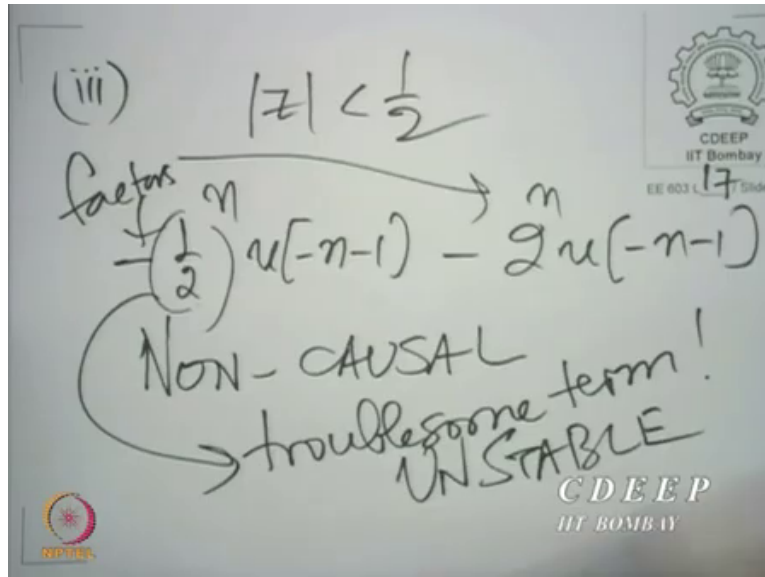 (iii) |z| < 1/2
CDEEP
IIT Bombay
EE 603 L 17 / Slide
factors
-(1/2)^n u[-n-1] - 2^n u[-n-1]
NON-CAUSAL
troublesome term!
UNSTABLE
CDEEP
IIT BOMBAY
NPTEL